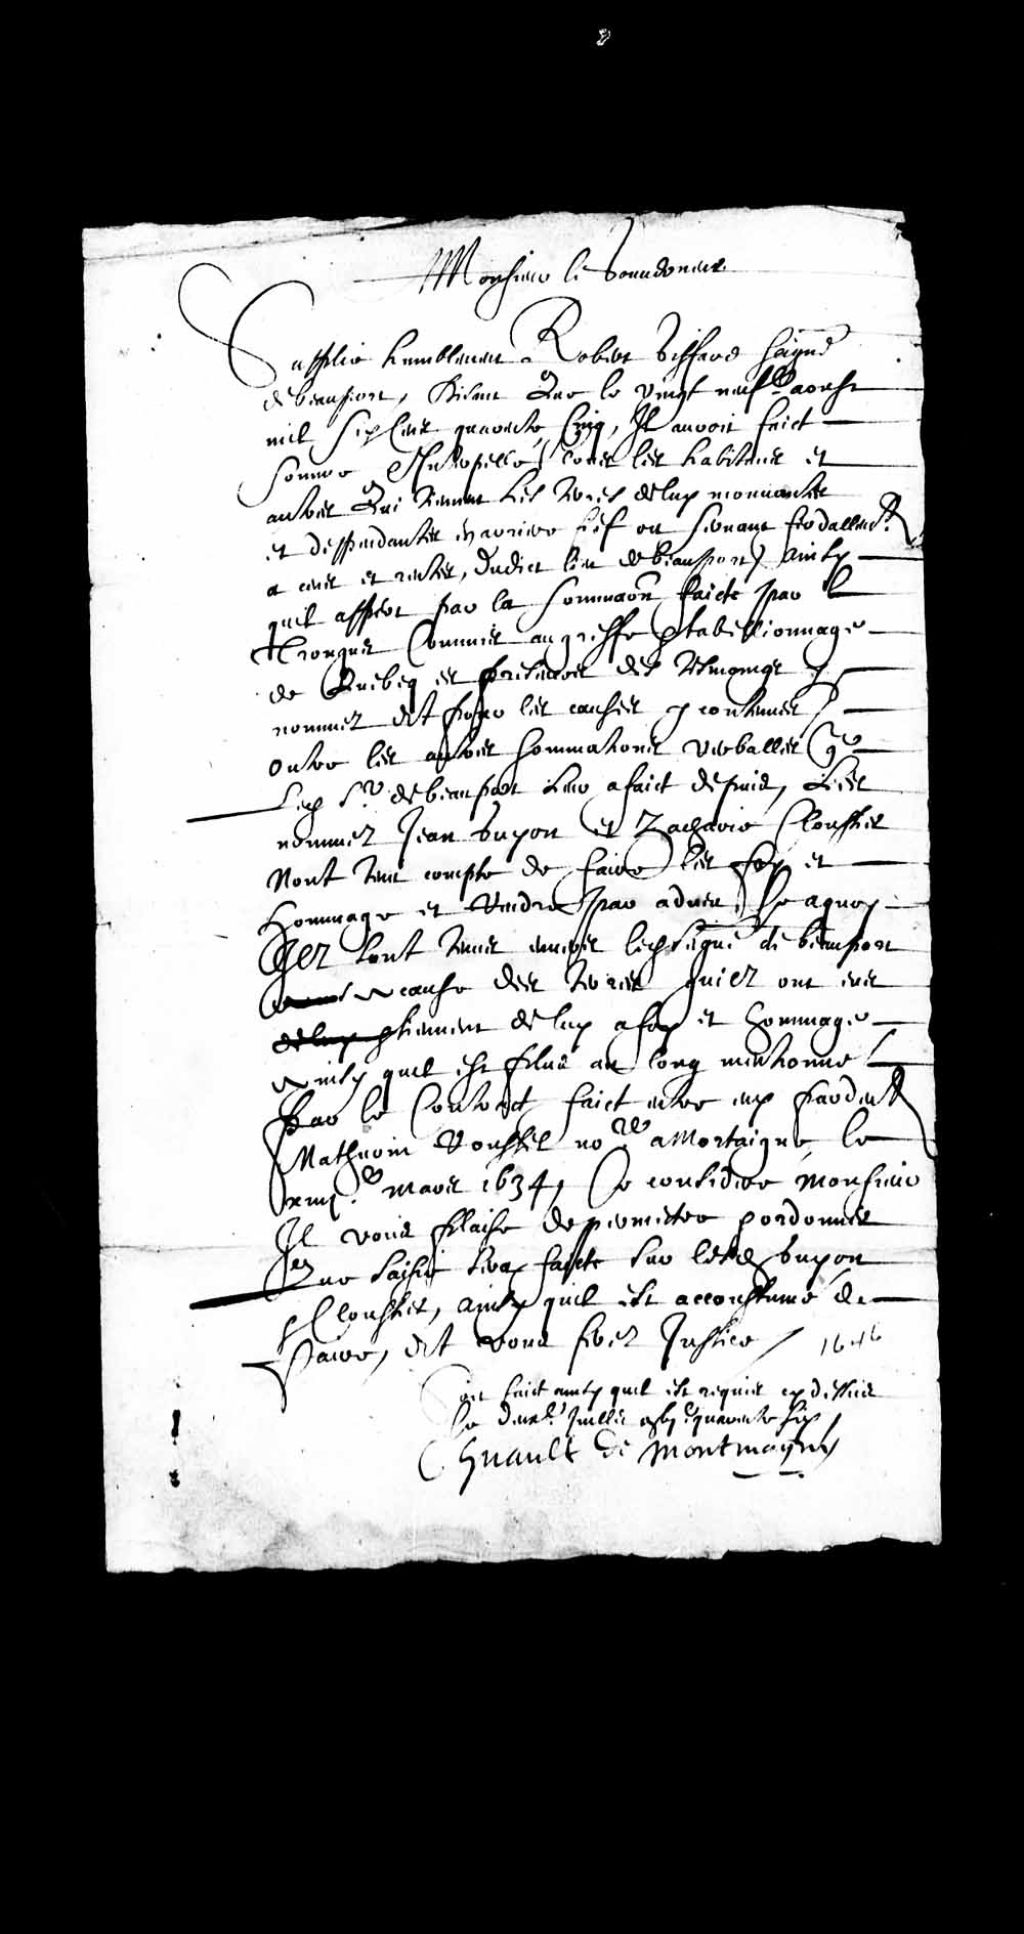 Monsieur le Gouverneur
Supplie humblement Robert Giffard seigneur
de beauport, disant Que le vingt neufe aoust
mil six cens quarente cinq, Il auroit faict
sommer Interpeller tous les habitans et
autres Qui tienent les terres de luy mouuantes
et deppendantes en arriere fief ou seruant feodallemt
a cens et rentes, dudict lieu de beauport, ainsy
quil appert par la sommaon faicte par
Tronquet Commis au greffe et tabellionnage
de Quebeq es presences des tesmoings y
nommez et pour les causes y contenues
Outre les autres sommations verballes que
led Sr de beauport leur a faict depuis, Les
nommez Jean Guyon et Zacharie Cloustier
Nont tenu compte de faire les foy et
Hommage et Rendre par adueu, Ce a quoy
Ilz sont tenus enuers led seigneur de beauport
a cause des terres quilz ont eues
de luy et tiennent de luy a foy et hommage
ainsy quil est plus au long mentionné
par le Contract faict entre eux pardeut
Mathurin Roussel nore a Mortaigne le
xiiije mars 1634, Ce consideré Monsieur
Il vous plaise de permettre et ordonner
Que saisie sera faicte sur lesd Guyon
et Cloustier, ainsy quil est accoustumé de
faire, et vous ferez Justice / 1646
Soit faict ainsy quil est requis cy dessus
Ce deuxe Juillet quarente six
C Huault de Montmagny